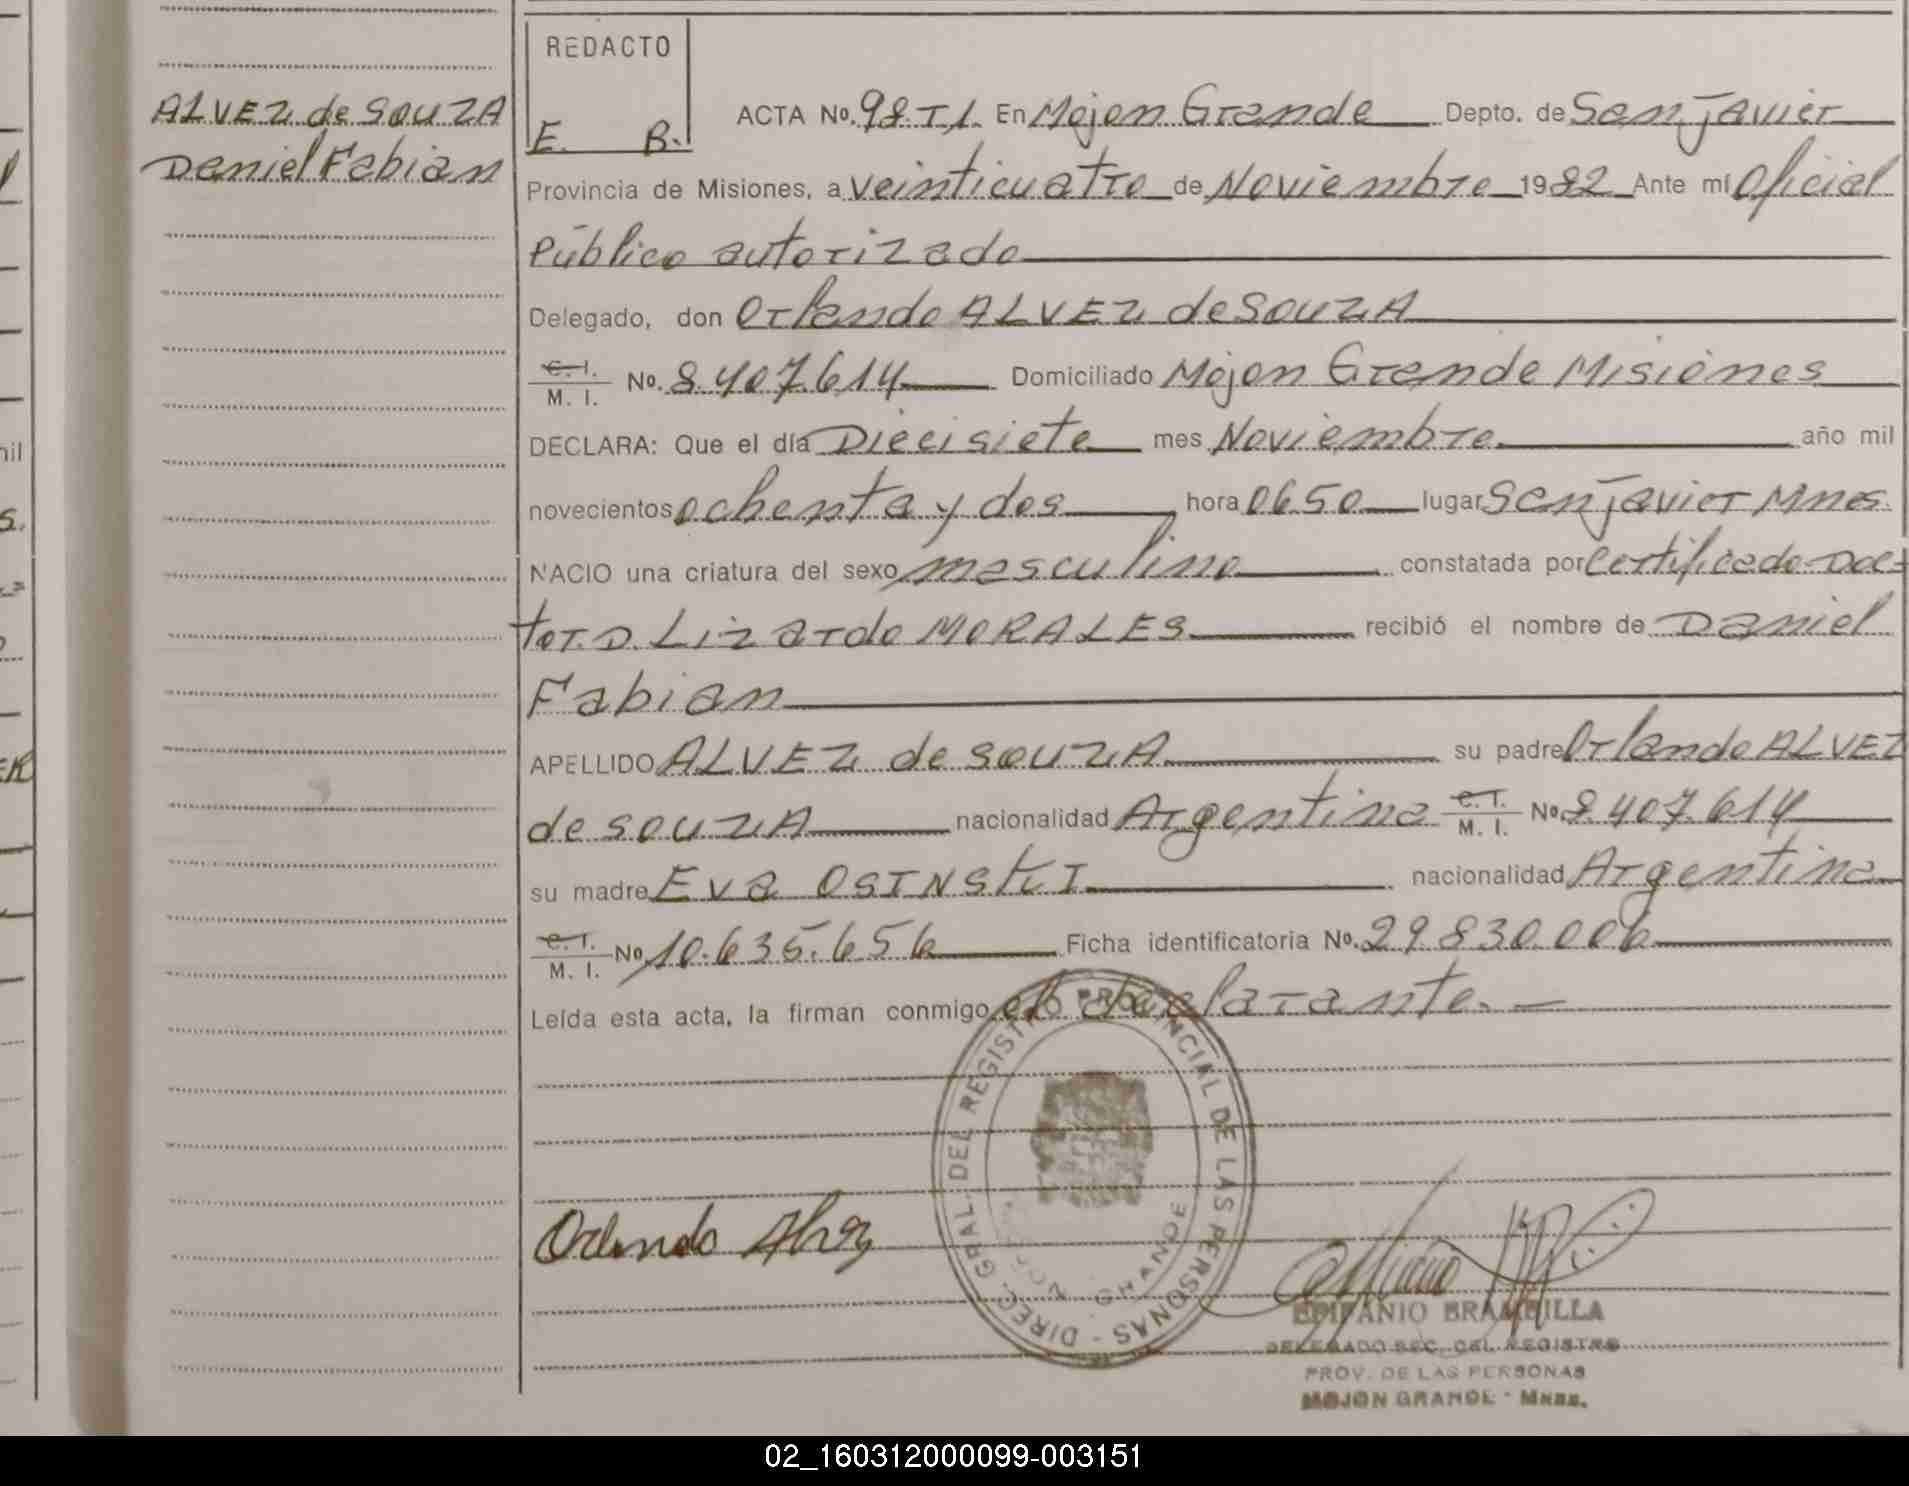 ALVEZ de SOUZA
Daniel Fabian
REDACTO
E. B.
ACTA No. 98 T I. En Mojon Grande Depto. de San Javier
Provincia de Misiones, a veinticuatro de Noviembre 1982 Ante mí Oficial
Público autorizado
Delegado, don Orlando ALVEZ de SOUZA
C. I.
M. I. No. 8.407.614 Domiciliado Mojon Grande Misiones
DECLARA: Que el día Diecisiete mes Noviembre año mil
novecientos ochenta y dos hora 0650 lugar San Javier Mnes.
NACIO una criatura del sexo masculino constatada por Certificado Doc-
tor. D. Lizardo MORALES recibió el nombre de Daniel
Fabian
APELLIDO ALVEZ de SOUZA su padre Orlando ALVEZ
de SOUZA nacionalidad Argentina C. I. M. I. No. 8.407.614
su madre Eva OSINSKI nacionalidad Argentina
C. I.
M. I. No. 10.635.656 Ficha identificatoria No. 29.830.006
Leída esta acta, la firman conmigo el declarante. —
DIREC. GRAL. DEL REGISTRO PROVINCIAL DE LAS PERSONAS -
GRANDE
Orlando Alvez
EPIFANIO BRAMBILLA
DELEGADO SEC. DEL REGISTRO
PROV. DE LAS PERSONAS
MOJON GRANDE - MNES.
02_160312000099-003151